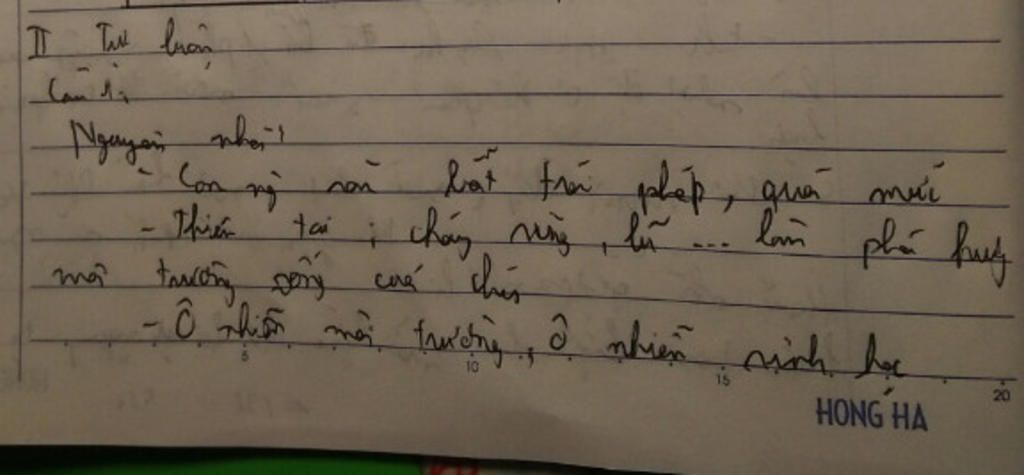 II Tự luận
Câu 1:
Nguyên nhân:
- Con ng săn bắt trái phép, quá mức
- Thiên tai; cháy rừng, lũ ... làm phá huỷ
môi trường sống của chúng
- Ô nhiễm môi trường, ô nhiễm sinh học
5 10 15 20
HONG HA